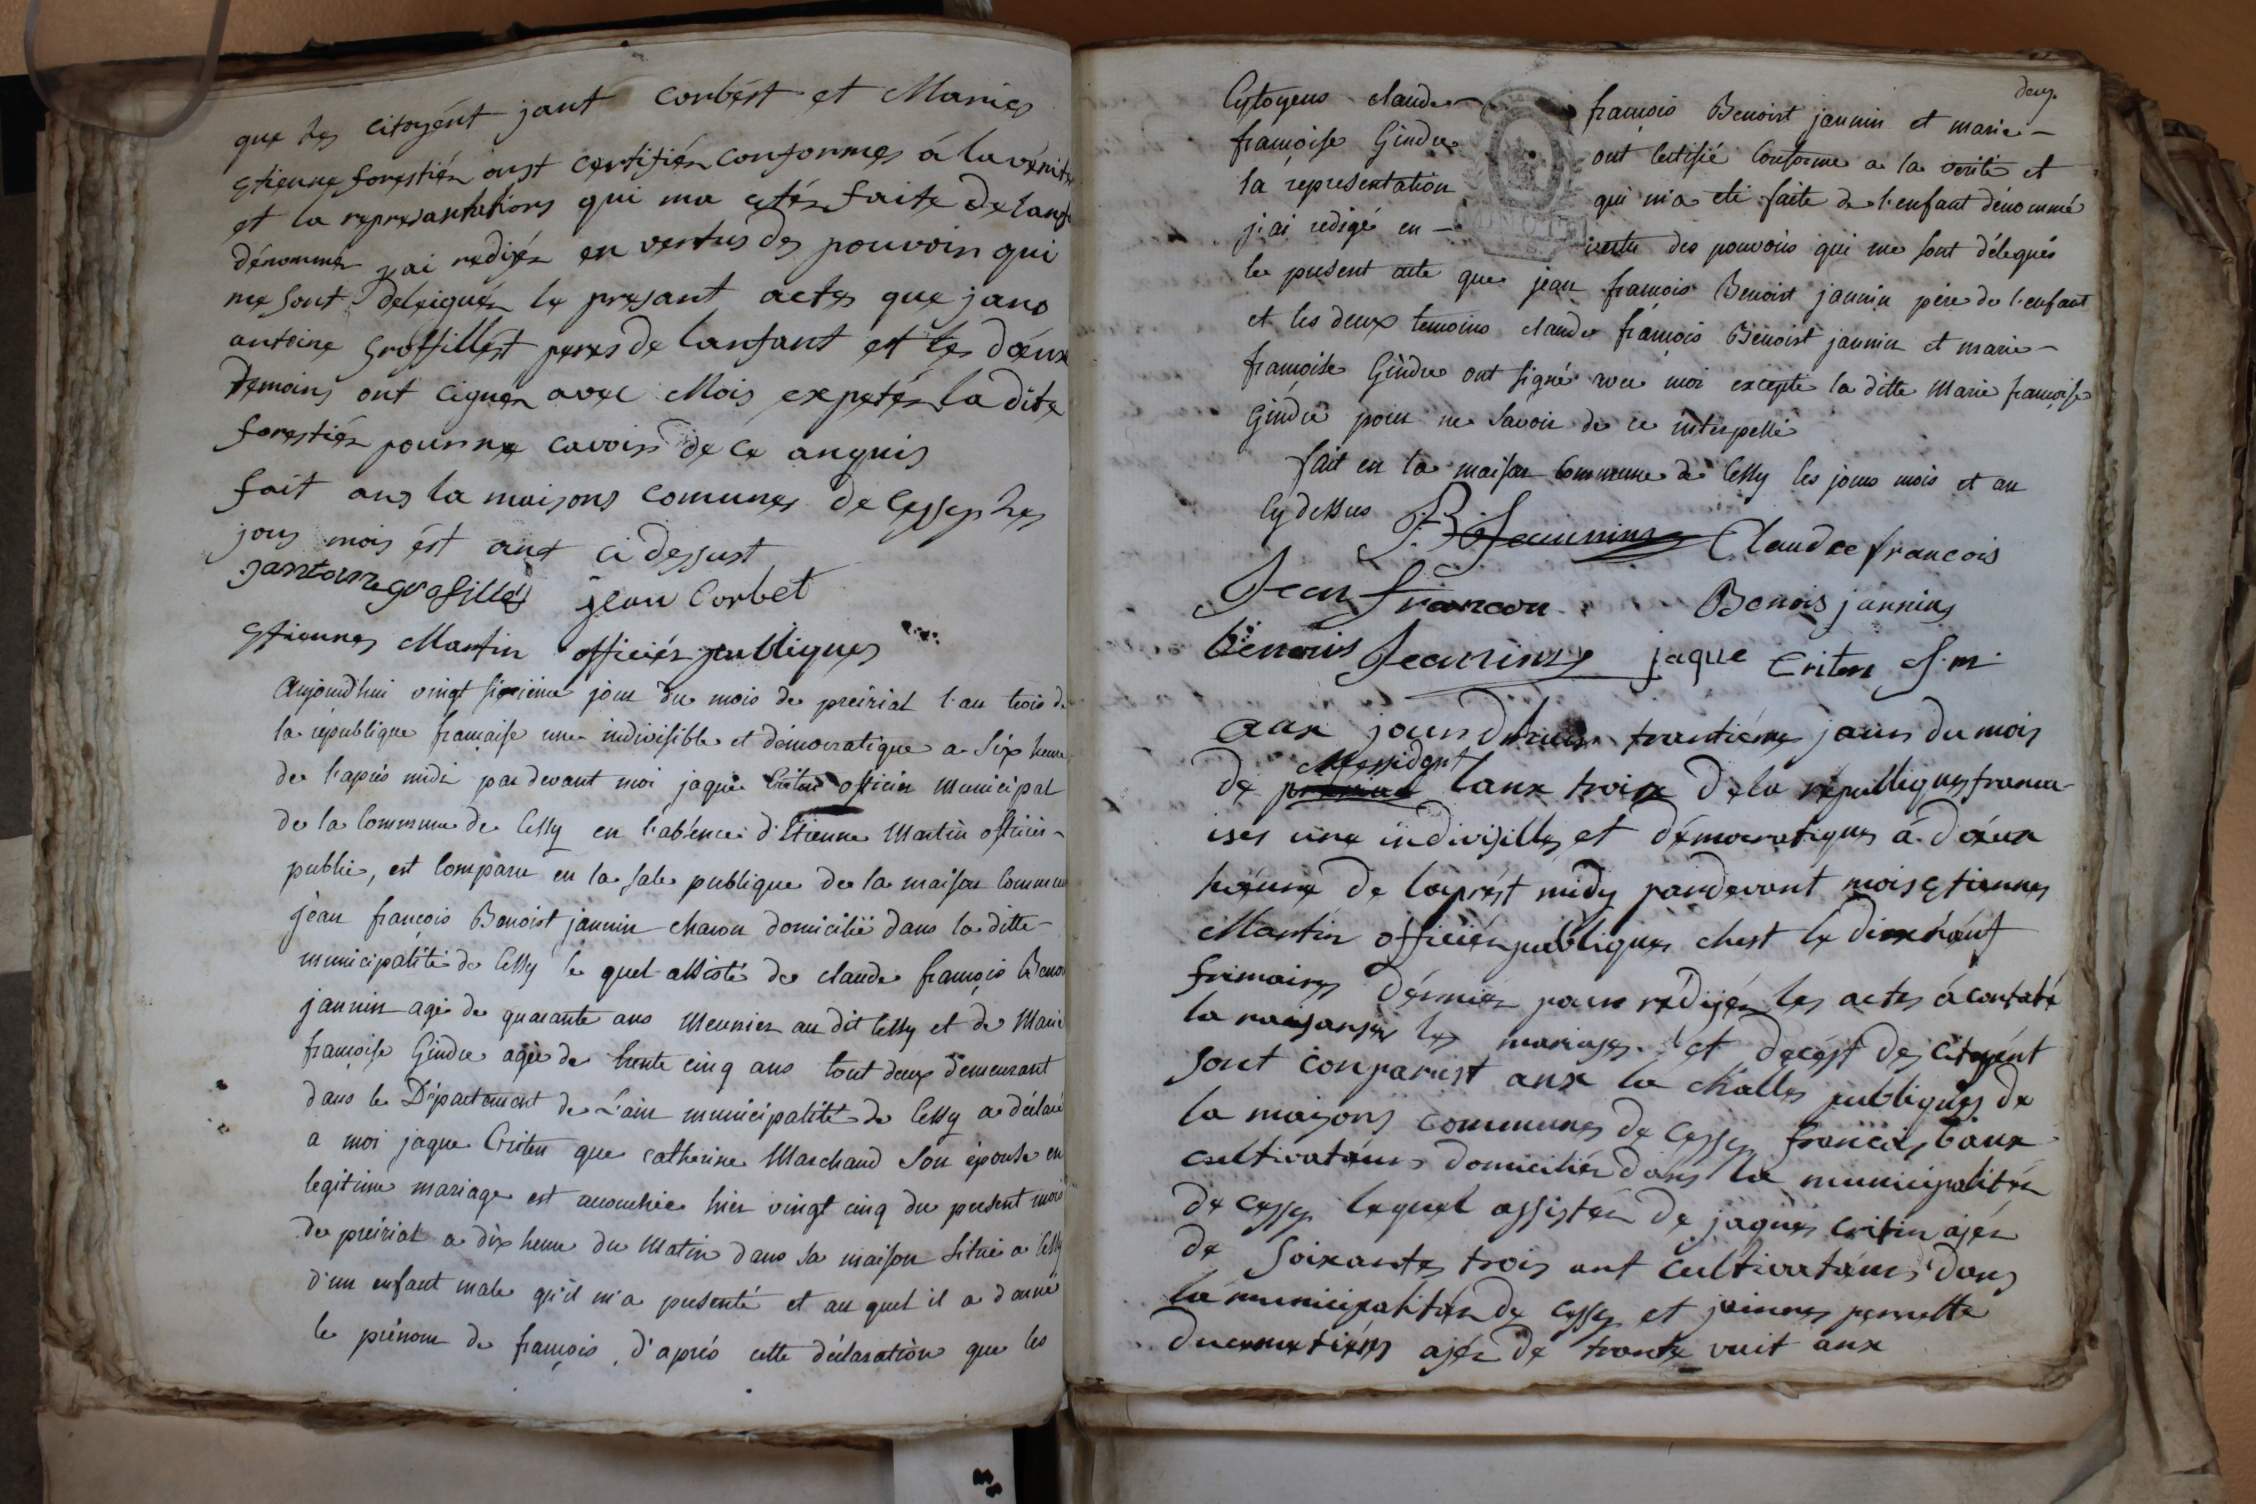 que les citoyént jant Corbést et Maries
etienne forestiér onst certifiér conformes á la vérite
et la represantations qui ma etér faite de lanf
dénommér jai redijér en vertus des pouvoir qui
me sont deleiguér le presant actes que jans
antoine Groffillést peres de lanfant et les dœux
temoins ont cignér avec Mois expetér la dite
forestiér pour ne cavoir de ce anquis
fait ans la maisons comunes de Cessy les
jous mois ést ant ci dessust
jantoine grosfillés jean Corbet
Etiennes Martin officiér publiques
Aujourd'hui vingt sixieme jour du mois de preirial l'an trois de
la république française une indivisible et démocratique a six heure
de l'aprés midi par devant moi jaque Criten officier municipal
de la Commune de Cessy en l'absence d'Etienne Martin officier
public, est Comparu en la sale publique de la maison Commune
jean françois Benoist jannin charon domicilié dans la ditte
municipalité de Cessy le quel assisté de claude françois Benoi
jannin agé de quarante ans Meunier au dit Cessy et de Marie
françoise Gindre agée de trente cinq ans tout deux demeurant
dans le Département de L'ain municipalité de Cessy a déclaré
a moi jaque Criten que catherine Marchand son épouse en
legitime mariage est accouchée hier vingt cinq du present mois
de preirial a dix heure du Matin dans sa maison située a Cessy
d'un enfant male qu'il m'a presenté et au quel il a donné
le prénom de françois, d'aprés cette déclaration que les
deux
Cytoyens claude françois Benoist jannin et marie
françoise Gindre ont Certifié Conforme a la verité et
la représentation qui m'a eté faite de l'enfant dénommé
j'ai redigé en vertu des pouvoirs qui me sont délegués
le present acte que jean françois Benoist jannin pére de l'enfant
et les deux temoins claude françois Benoist jannin et marie
françoise Gindre ont signé avec moi excepté la ditte Marie françoise
Gindre pour ne savoir de ce interpellé
fait en la maison Commune de Cessy les jours mois et an
Cy dessus
Claudee francois
Jean francou Benois jannins
benoius Jeanins jaque Criten of. m.
aux jourdhuis trantiémes jours du mois
de Messidort lanx troix de la républiques franca
ises une indivisilles et démocratiques á dœux
heures de laprést midy pardevant mois etiennes
Martin officiér publiques elust le dixneuf
frimaires dérniér pour rédijér les actes á contaté
la naisanses les mariages et décést des citoyént
sont comparust anx la challes publiques de
la maisons communes de Cessy francois baux
cultivatéurs domiciliér dans la municipalitér
de cessy lequel assistér de jaques critin ajér
de soixantes trois ant cultivatéurs dans
la municipalitér de cessy et jeannes pernette
ducrmetiérs ajér de trante vuit anx